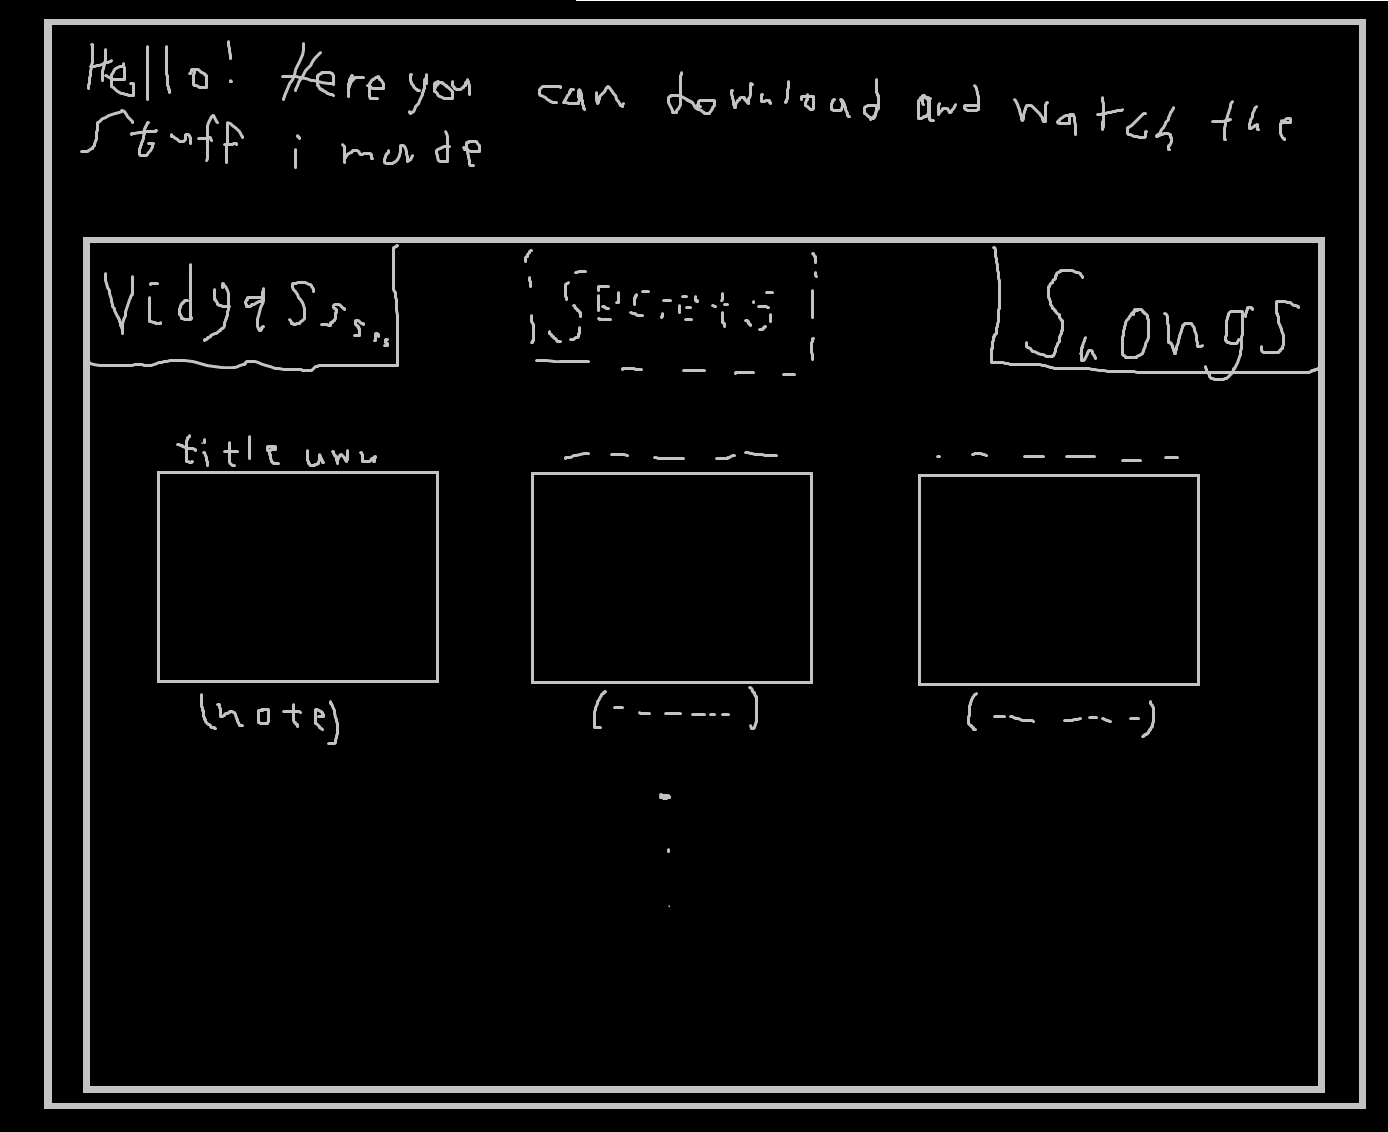 Hello! Here you can download and watch the
Stuff i made
VidyasSssss
Secrets
Shongs
title uwu
(note)